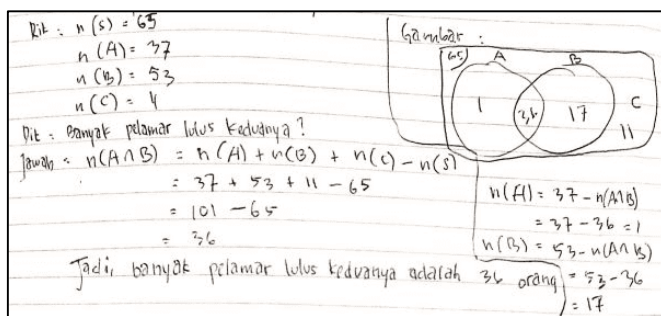 Dik : n(S) = 65
n(A) = 37
n(B) = 53
n(C) = 4
Dit : Banyak pelamar lulus keduanya?
Jawab : n(A∩B) = n(A) + n(B) + n(C) - n(S)
= 37 + 53 + 11 - 65
= 101 - 65
= 36
Jadi, banyak pelamar lulus keduanya adalah 36 orang
Gambar :
65 A B
1 36 17 C
11
n(A) = 37 - n(A∩B)
= 37 - 36 = 1
n(B) = 53 - n(A∩B)
= 53 - 36
= 17